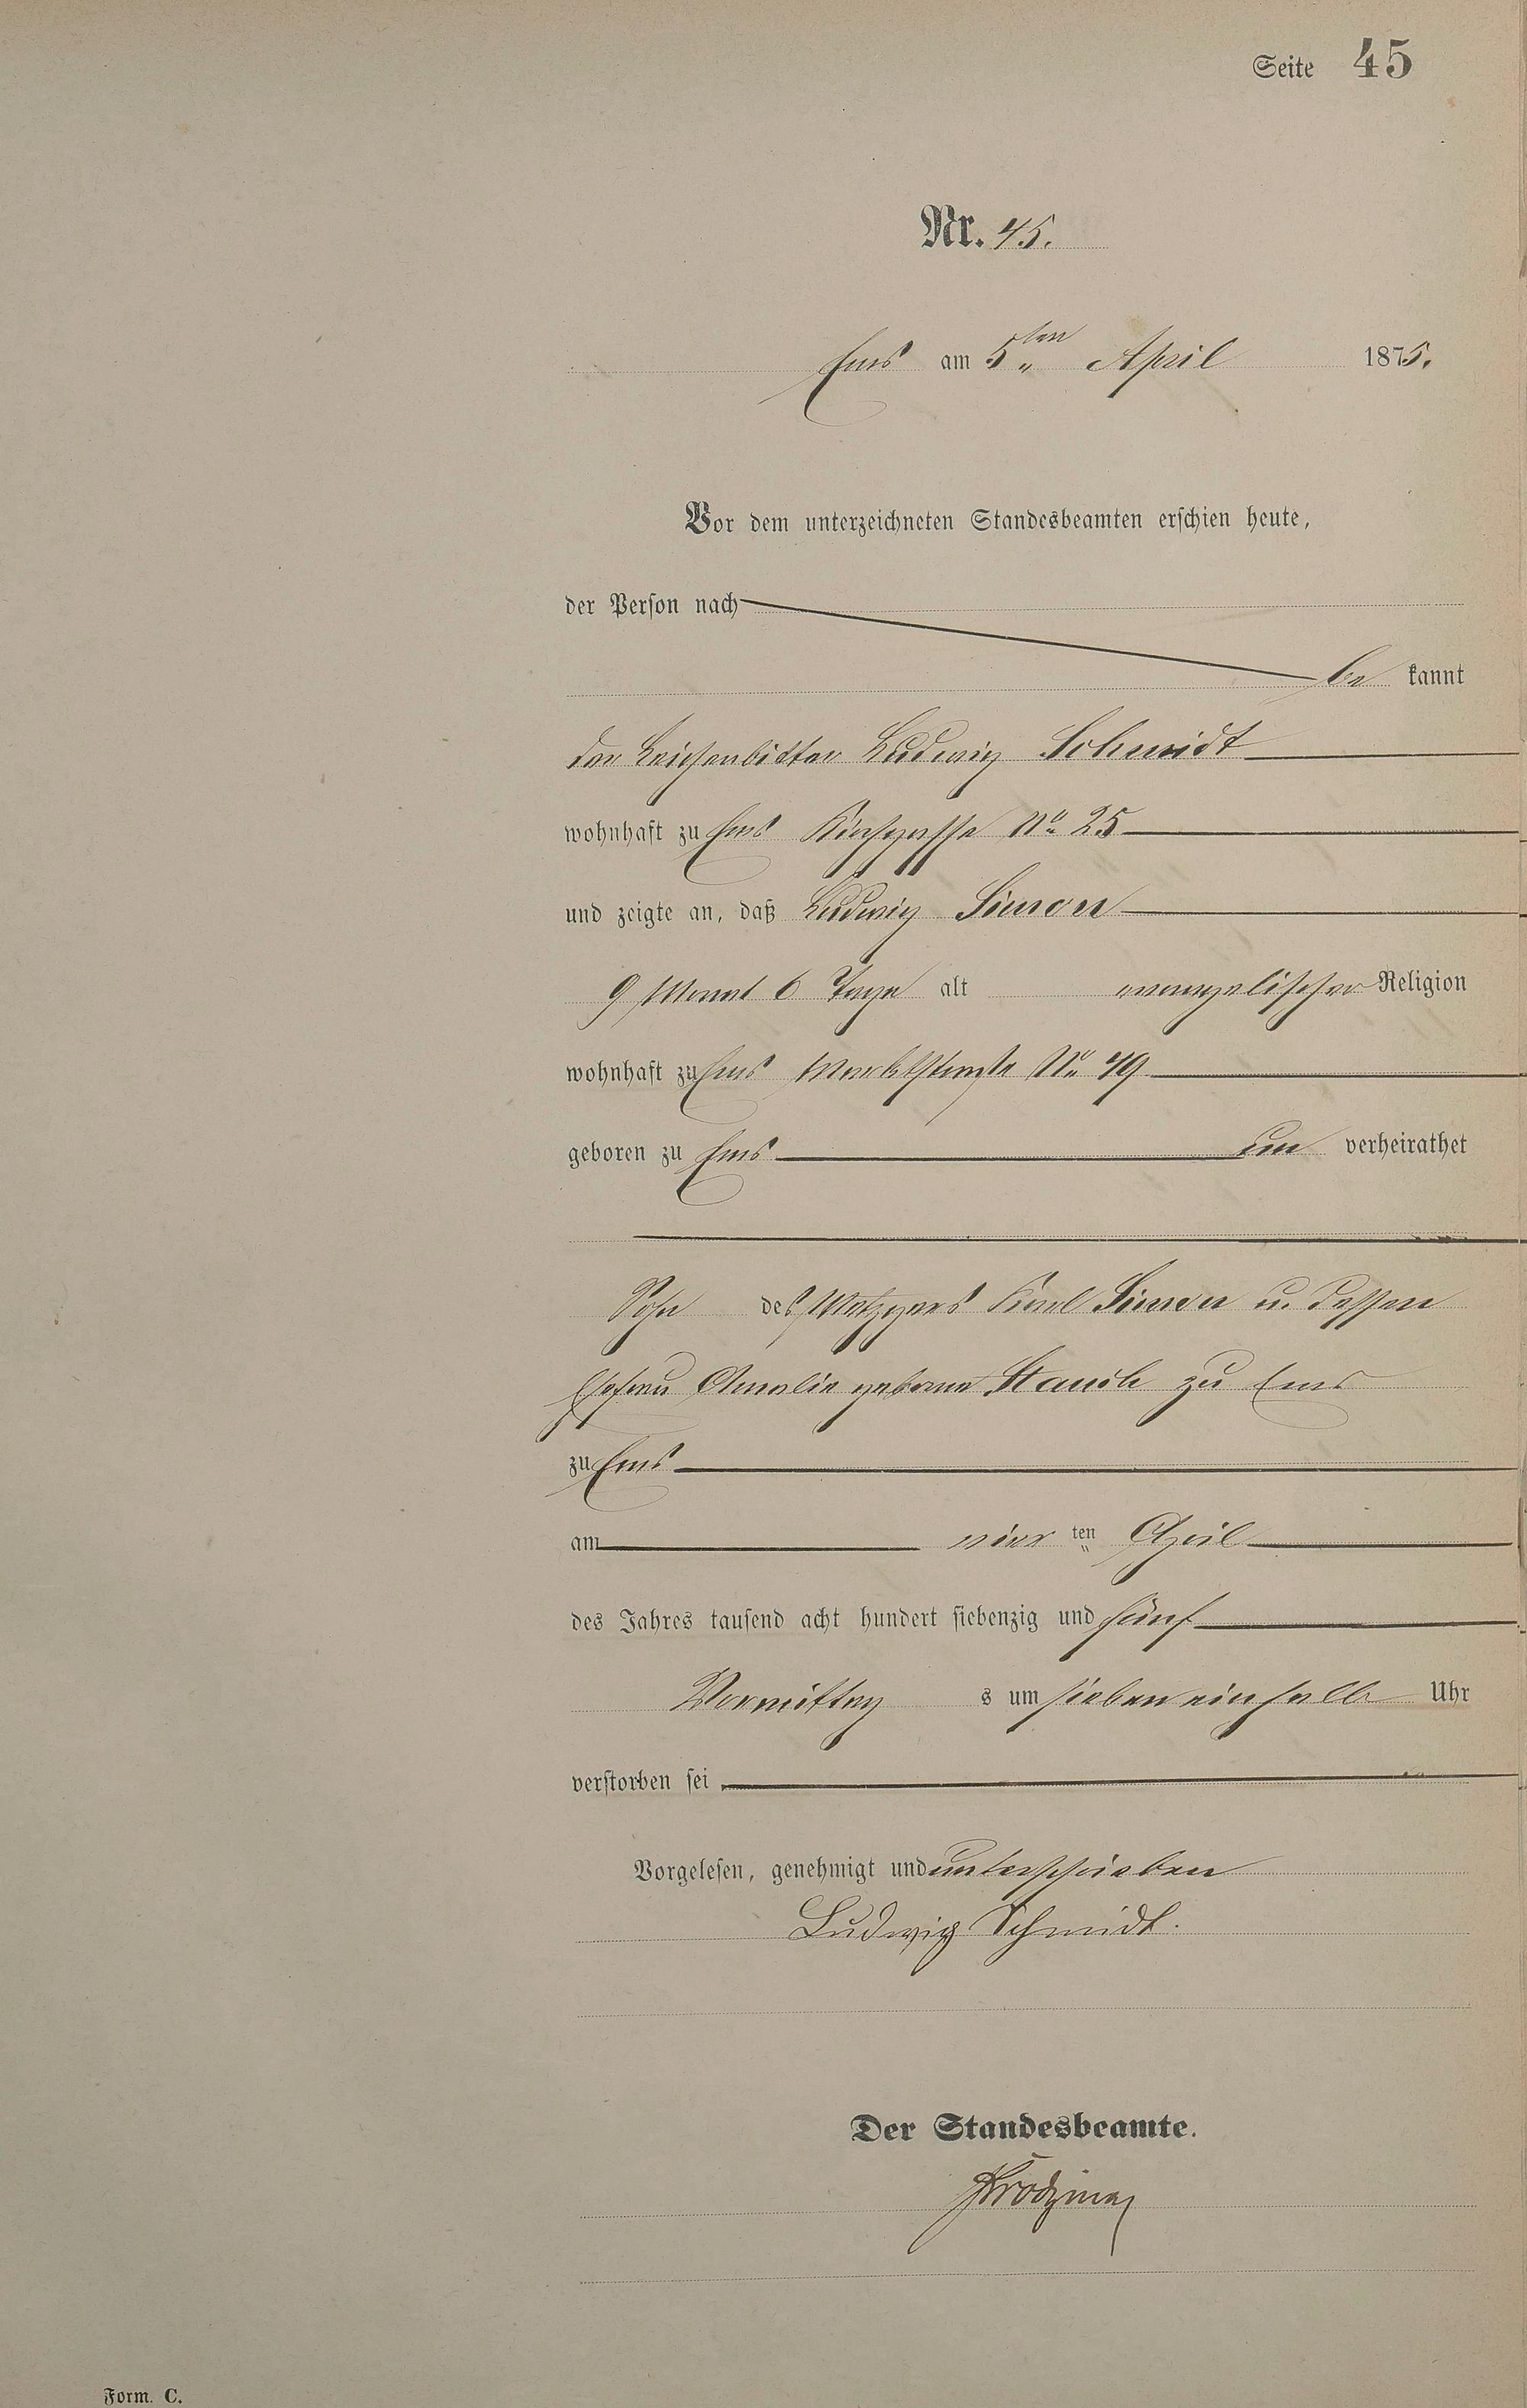 Seite 45
Nr. 45.
Ems am 5ten April 1875.
Vor dem unterzeichneten Standesbeamten erschien heute,
der Person nach
be kannt
der Leichenbitter Ludwig Schmidt
wohnhaft zu Ems Kirchgasse No 25
und zeigte an, daß Ludwig Simon
9 Monat 6 Tage alt evangelischer Religion
wohnhaft zu Ems Marktstraße No 49
geboren zu Ems un verheirathet
Sohn des Metzgers Karl Simon u. dessen
Ehefrau Amalie geborne Stauch zu Ems
zu Ems
am vier ten April
des Jahres tausend acht hundert siebenzig und fünf
Vormittag s um sieben einhalb Uhr
verstorben sei
Vorgelesen, genehmigt und unterschrieben
Ludwig Schmidt.
Der Standesbeamte.
Form. C.